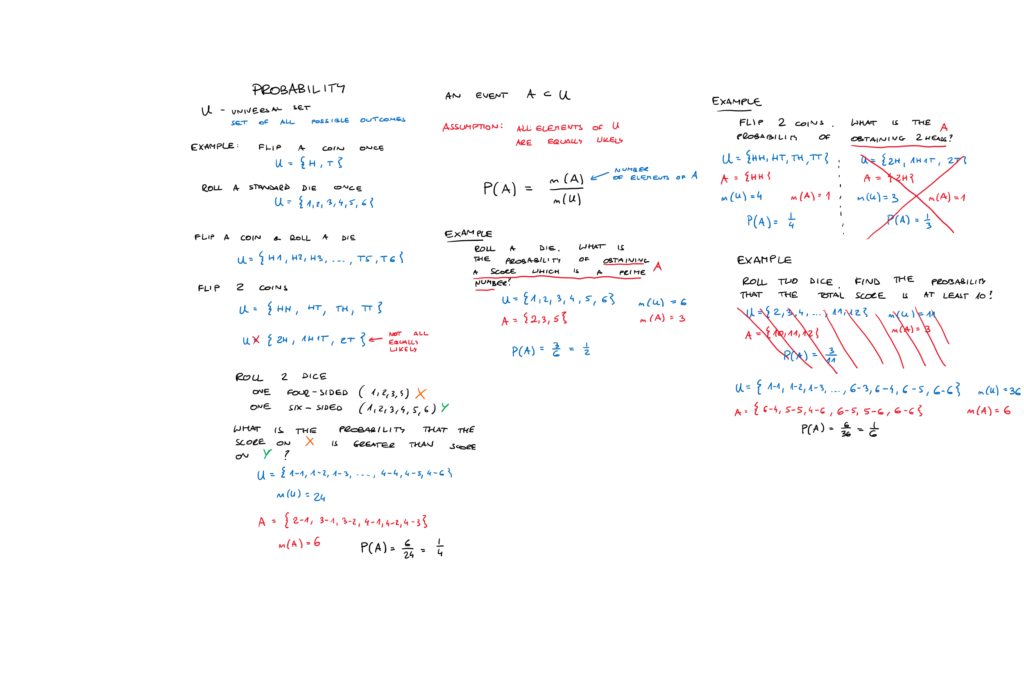 PROBABILITY
U - UNIVERSAL SET
SET OF ALL POSSIBLE OUTCOMES
EXAMPLE: FLIP A COIN ONCE
U = {H, T}
ROLL A STANDARD DIE ONCE
U = {1,2,3,4,5,6}
FLIP A COIN & ROLL A DIE
U = {H1, H2, H3, ..., T5, T6}
FLIP 2 COINS
U = {HH, HT, TH, TT}
U X {2H, 1H1T, 2T} ← NOT ALL
EQUALLY
LIKELY
ROLL 2 DICE
ONE FOUR-SIDED (1,2,3,4) X
ONE SIX-SIDED (1,2,3,4,5,6) Y
WHAT IS THE PROBABILITY THAT THE
SCORE ON X IS GREATER THAN SCORE
ON Y ?
U = {1-1, 1-2, 1-3, ...., 4-4, 4-5, 4-6}
m(U) = 24
A = {2-1, 3-1, 3-2, 4-1, 4-2, 4-3}
m(A) = 6 P(A) = 6/24 = 1/4
AN EVENT A ⊂ U
ASSUMPTION: ALL ELEMENTS OF U
ARE EQUALLY LIKELY
P(A) = m(A)/m(U) ← NUMBER
OF ELEMENTS OF A
EXAMPLE
ROLL A DIE. WHAT IS
THE PROBABILITY OF OBTAINING
A SCORE WHICH IS A PRIME A
NUMBER?
U = {1,2,3,4,5,6} m(U) = 6
A = {2,3,5} m(A) = 3
P(A) = 3/6 = 1/2
EXAMPLE
FLIP 2 COINS. WHAT IS THE A
PROBABILITY OF OBTAINING 2 HEADS?
U = {HH, HT, TH, TT} U = {2H, 1H1T, 2T}
A = {HH} A = {2H}
m(U) = 4 m(A) = 1 m(U) = 3 m(A) = 1
P(A) = 1/4 P(A) = 1/3
EXAMPLE
ROLL TWO DICE. FIND THE PROBABILITY
THAT THE TOTAL SCORE IS AT LEAST 10!
U = {2,3,4,...,11,12} m(U) = 11
A = {10,11,12} m(A) = 3
P(A) = 3/11
U = {1-1, 1-2, 1-3, ..., 6-3, 6-4, 6-5, 6-6} m(U) = 36
A = {6-4, 5-5, 4-6, 6-5, 5-6, 6-6} m(A) = 6
P(A) = 6/36 = 1/6